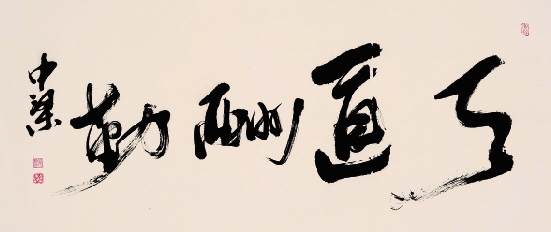 天道酬勤
中梁